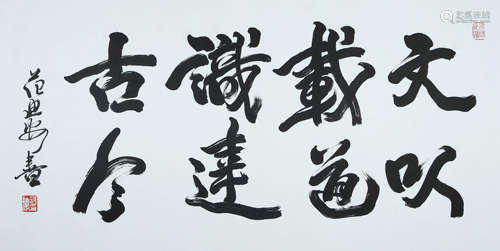 文以
載道
識達
古今
范迪安書